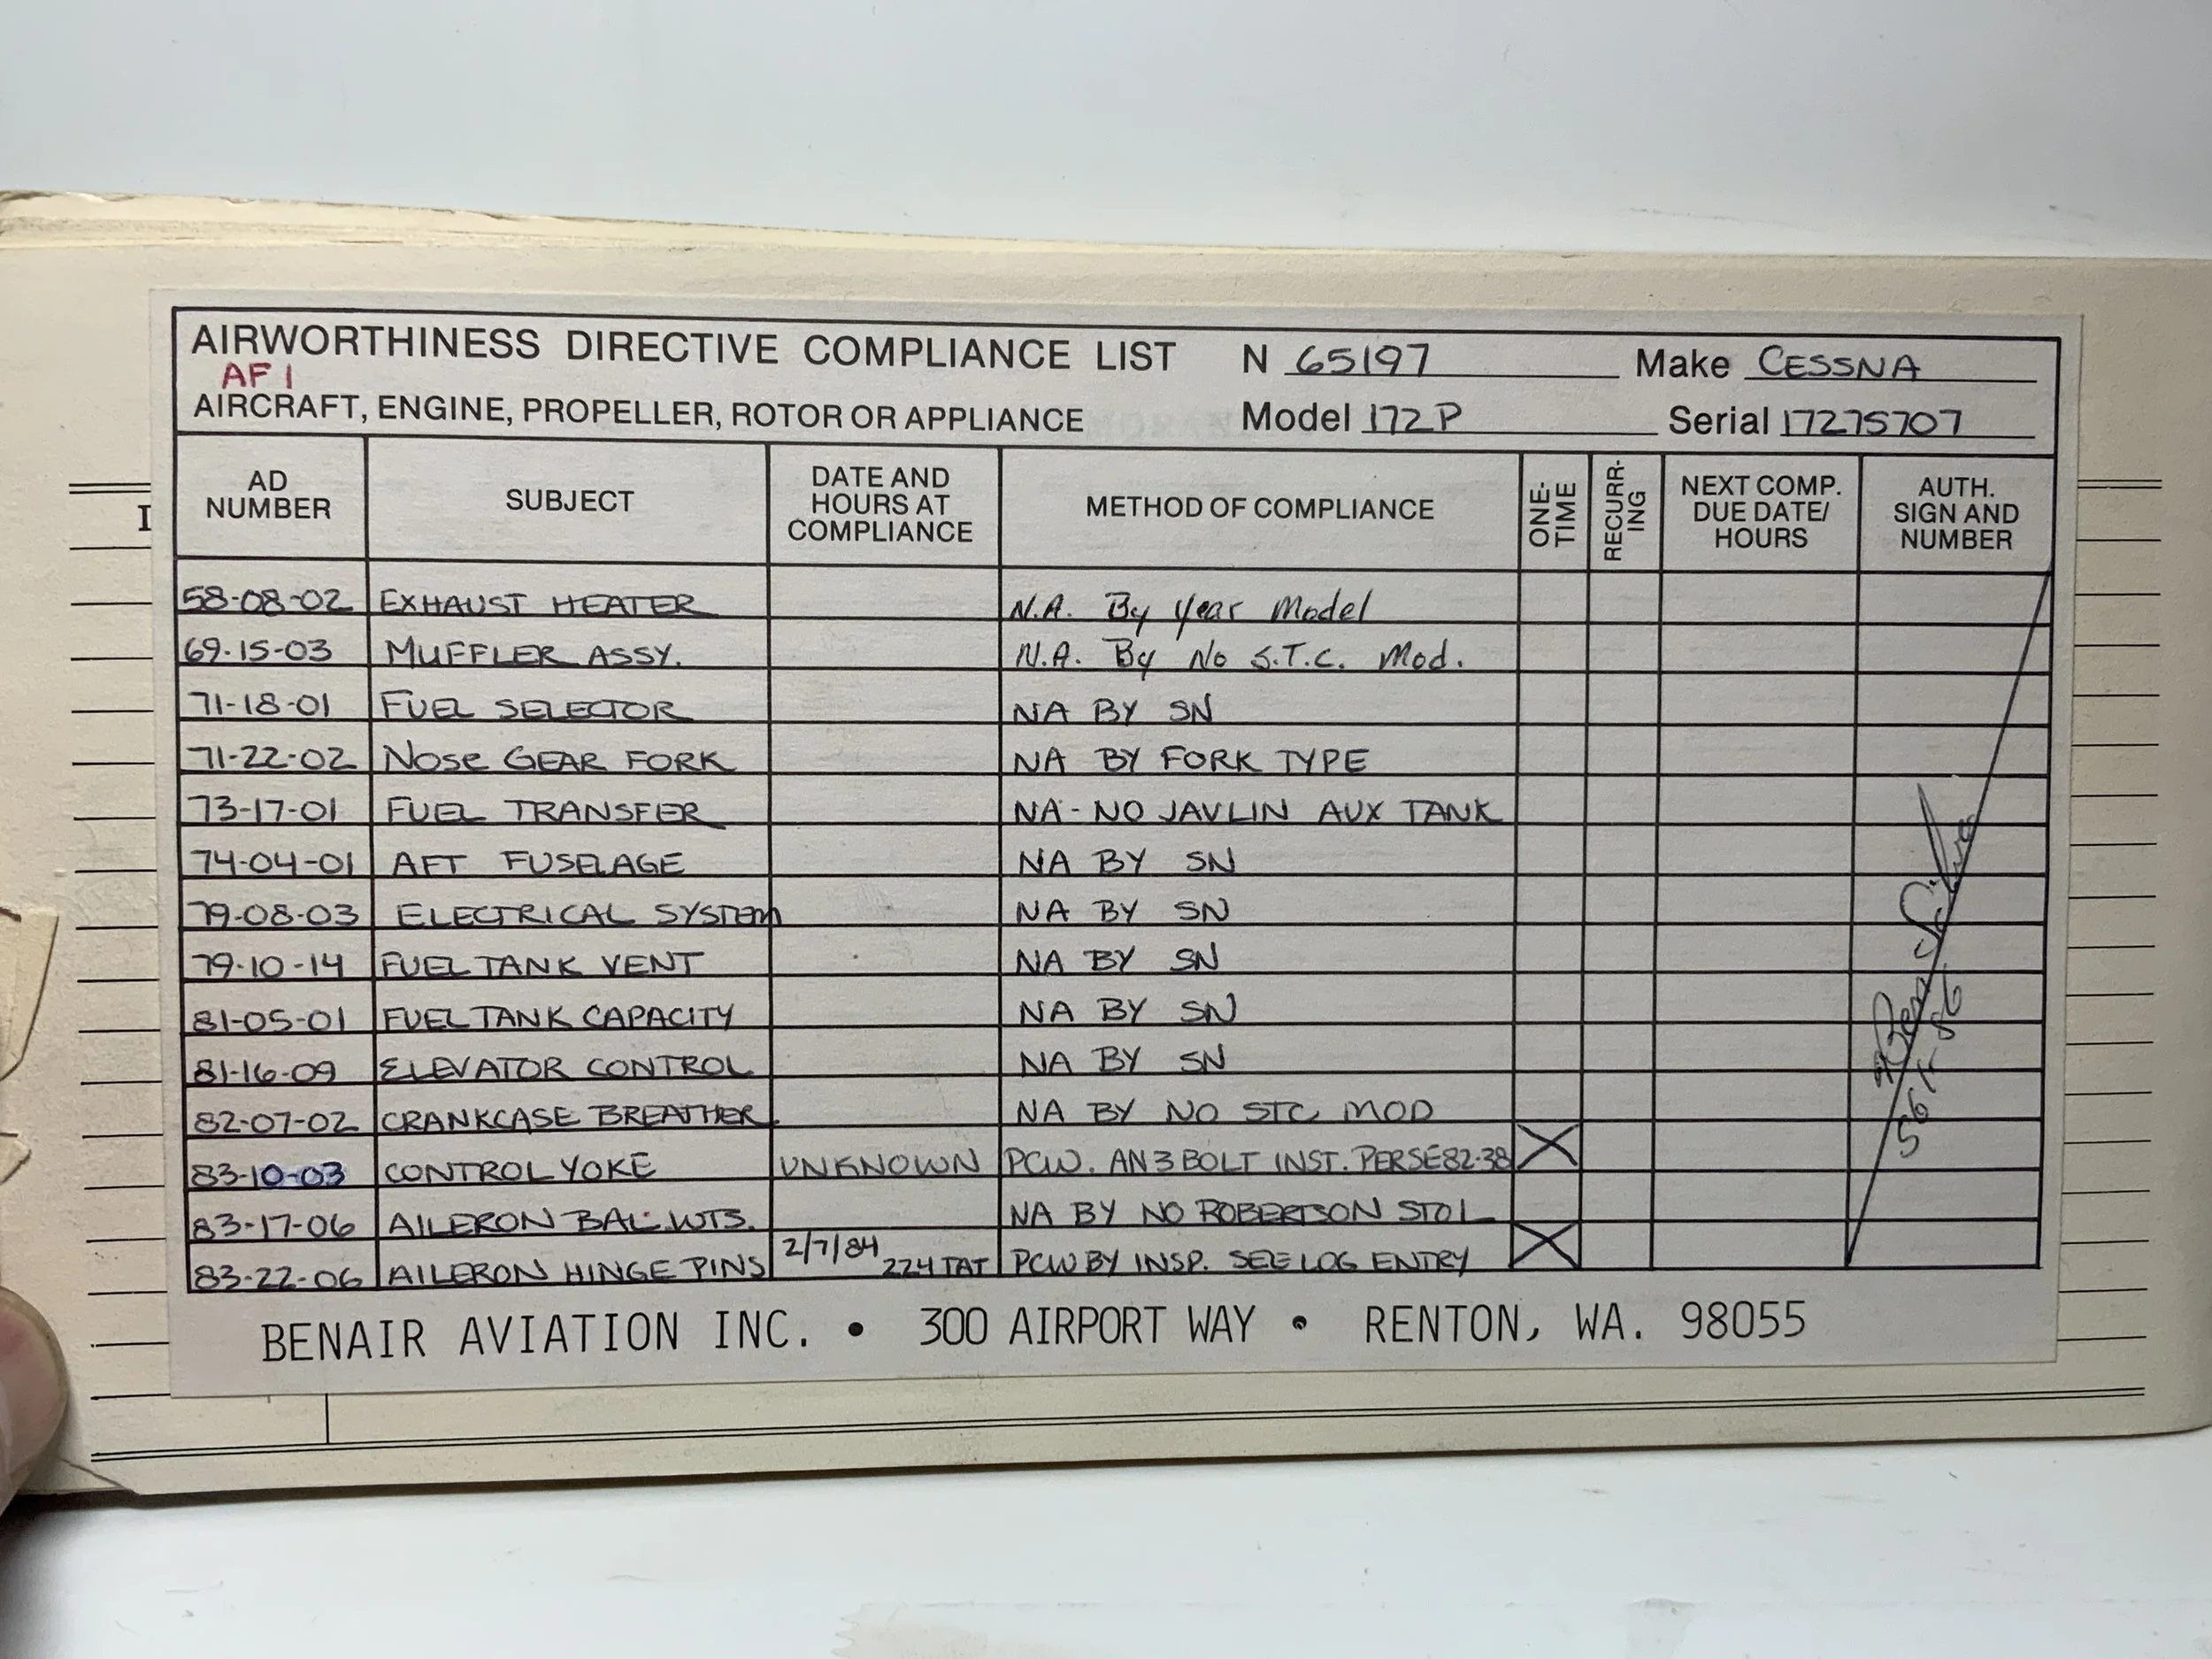 AIRWORTHINESS DIRECTIVE COMPLIANCE LIST N 65197 Make CESSNA
AF 1
AIRCRAFT, ENGINE, PROPELLER, ROTOR OR APPLIANCE Model 172P Serial 17275707
AD NUMBER SUBJECT DATE AND HOURS AT COMPLIANCE METHOD OF COMPLIANCE ONE-TIME RECURR-ING NEXT COMP. DUE DATE/ HOURS AUTH. SIGN AND NUMBER
I
58-08-02 EXHAUST HEATER N.A. By Year Model
69-15-03 MUFFLER ASSY. N.A. By No S.T.C. Mod.
71-18-01 FUEL SELECTOR NA BY SN
71-22-02 NOSE GEAR FORK NA BY FORK TYPE
73-17-01 FUEL TRANSFER NA - NO JAVLIN AUX TANK
74-04-01 AFT FUSELAGE NA BY SN
79-08-03 ELECTRICAL SYSTEM NA BY SN
79-10-14 FUEL TANK VENT NA BY SN
81-05-01 FUEL TANK CAPACITY NA BY SN
81-16-09 ELEVATOR CONTROL NA BY SN
82-07-02 CRANKCASE BREATHER NA BY NO STC MOD
83-10-03 CONTROL YOKE UNKNOWN PCW. AN3 BOLT INST. PER SE82-38 X
83-17-06 AILERON BAL. WTS. NA BY NO ROBERTSON STOL
83-22-06 AILERON HINGE PINS 2/7/84 224 TAT PCW BY INSP. SEE LOG ENTRY X
BENAIR AVIATION INC. • 300 AIRPORT WAY • RENTON, WA. 98055